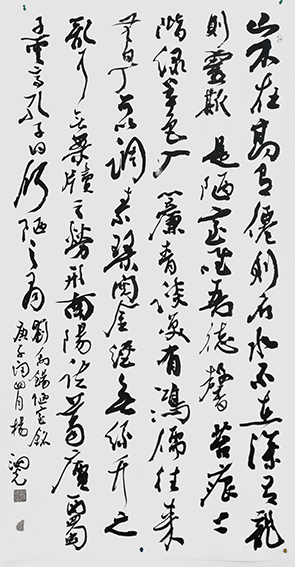 山不在高有僊則名水不在深有龍
則靈斯是陋室唯吾德馨苔痕上
階綠草色入簾青談笑有鴻儒往來
無白丁可以調素琴閱金經無絲竹之
亂耳無案牘之勞形南陽諸葛廬西蜀
子雲亭孔子曰何陋之有
劉禹錫陋室銘
庚子閏四月楊